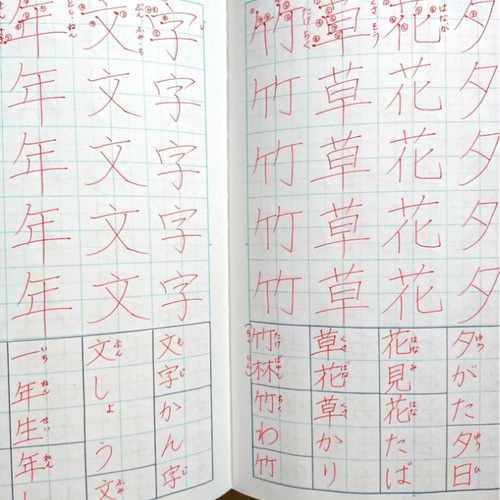 夕夕夕夕夕
花花花花花
草草草草草
竹竹竹竹竹
字字字字字
文文文文文
年年年年年
夕がた夕日
花見花たば
草花草かり
竹林竹わ竹
文字かん字
文しょう文
一年生年